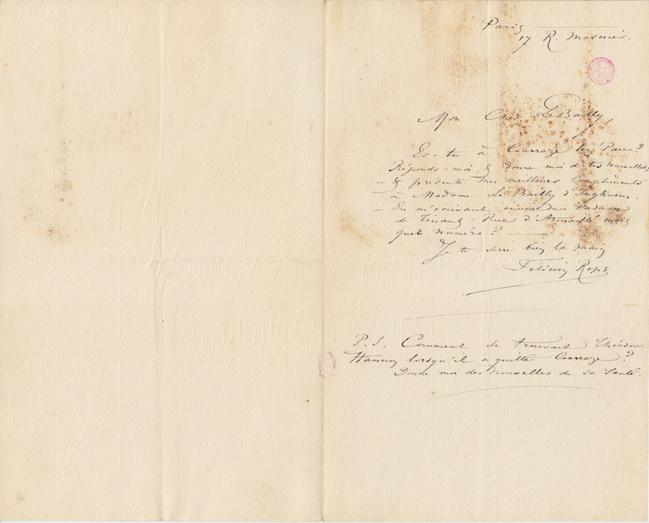 Paris
17 R. Mosnier.
Mon Cher LeBailly,
Es-tu à Courraze lez Pau?
Réponds-moi, & donne moi de tes nouvelles,
– & présente mes meilleurs compliments
à Madame Le Bailly d'Inghuem.
– En m'écrivant envoie moi
de Tinant: Rue d'Armaillé mais
quel numéro? –
Je te serre bien la main
Félicien Rops
P.S. Comment se trouvait Théodore
Hannon lorsqu'il a quitté Courraze?
Donne moi des nouvelles de sa santé.